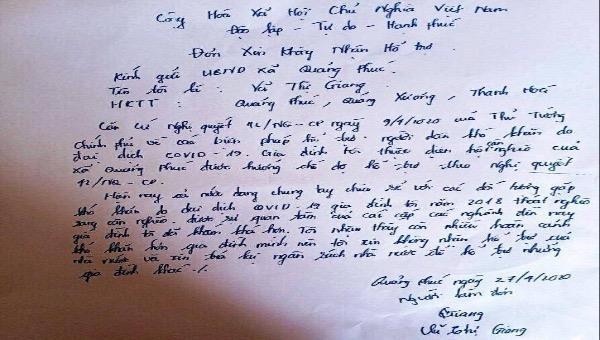 Cộng Hoà Xã Hội Chủ Nghĩa Việt Nam
Độc lập - Tự do - Hạnh phúc
Đơn Xin Không Nhận Hỗ trợ.
Kính gửi UBND xã Quảng Phúc.
Tên tôi là : Vũ Thị Giang
HKTT : Quảng Phúc, Quảng Xương, Thanh Hoá
Căn cứ nghị quyết 42/NQ-CP ngày 9/4/2020 của Thủ Tướng
Chính phủ về các biện pháp hỗ trợ người dân khó khăn do
đại dịch COVID-19. Gia đình tôi thuộc diện hộ cận nghèo của
xã Quảng Phúc được hưởng chế độ hỗ trợ theo nghị quyết
42/NQ-CP.
Hiện nay cả nước đang chung tay chia sẻ với các đối tượng gặp
khó khăn do đại dịch COVID-19 gia đình tôi năm 2018 thoát nghèo
sang cận nghèo. được sự quan tâm của các cấp các nghành đến nay
gia đình tôi đã khấm khá hơn. Tôi nhận thấy còn nhiều hoàn cảnh
khó khăn hơn gia đình mình nên tôi xin không nhận hỗ trợ của
nhà nước và xin trả lại ngân sách nhà nước để hỗ trợ những
gia đình khác ./.
Quảng Phúc ngày 27/4/2020
Người làm đơn
Giang
Vũ Thị Giang